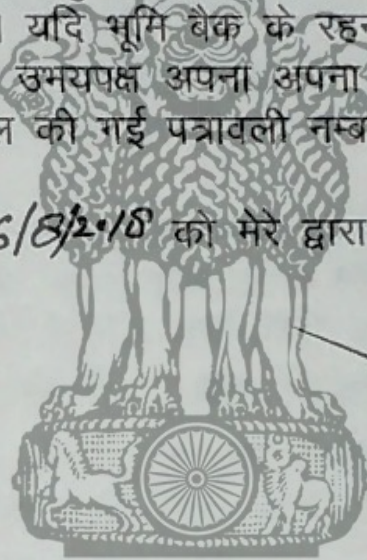 यदि भूमि बैंक के रहन
उभयपक्ष अपना अपना
की गई पत्रावली नम्ब
6/8/2018 को मेरे द्वारा